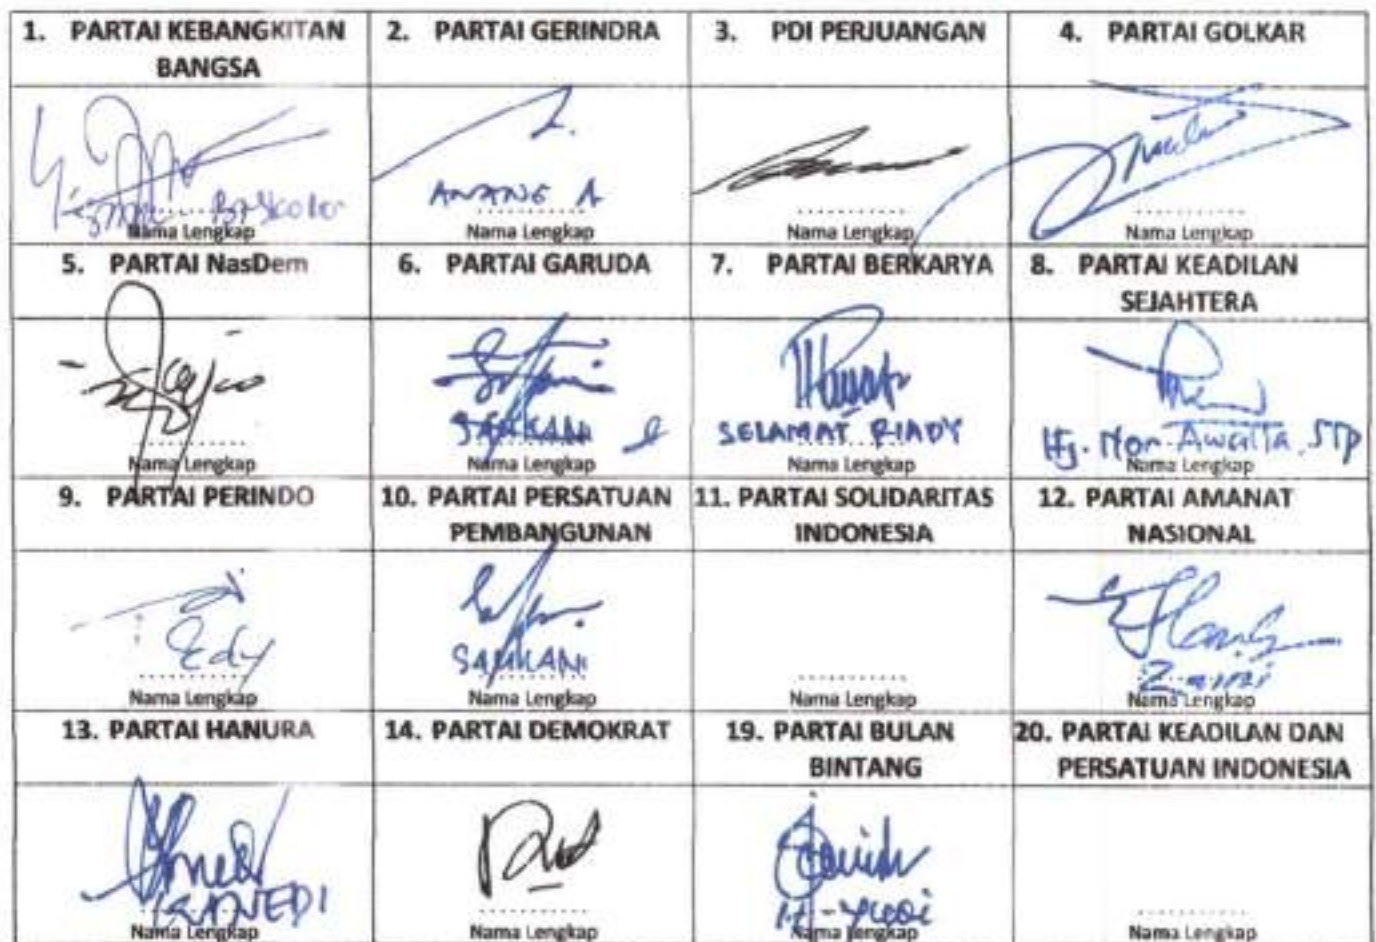 1. PARTAI KEBANGKITAN BANGSA
2. PARTAI GERINDRA
3. PDI PERJUANGAN
4. PARTAI GOLKAR
Nama Lengkap
ANANG A
Nama Lengkap
Nama Lengkap
Nama Lengkap
5. PARTAI NasDem
6. PARTAI GARUDA
7. PARTAI BERKARYA
8. PARTAI KEADILAN SEJAHTERA
Nama Lengkap
Nama Lengkap
SELAMAT RIADY
Nama Lengkap
Hj. Nor
Nama Lengkap
9. PARTAI PERINDO
10. PARTAI PERSATUAN PEMBANGUNAN
11. PARTAI SOLIDARITAS INDONESIA
12. PARTAI AMANAT NASIONAL
Edy
Nama Lengkap
Nama Lengkap
Nama Lengkap
Nama Lengkap
13. PARTAI HANURA
14. PARTAI DEMOKRAT
19. PARTAI BULAN BINTANG
20. PARTAI KEADILAN DAN PERSATUAN INDONESIA
Nama Lengkap
Nama Lengkap
Nama Lengkap
Nama Lengkap